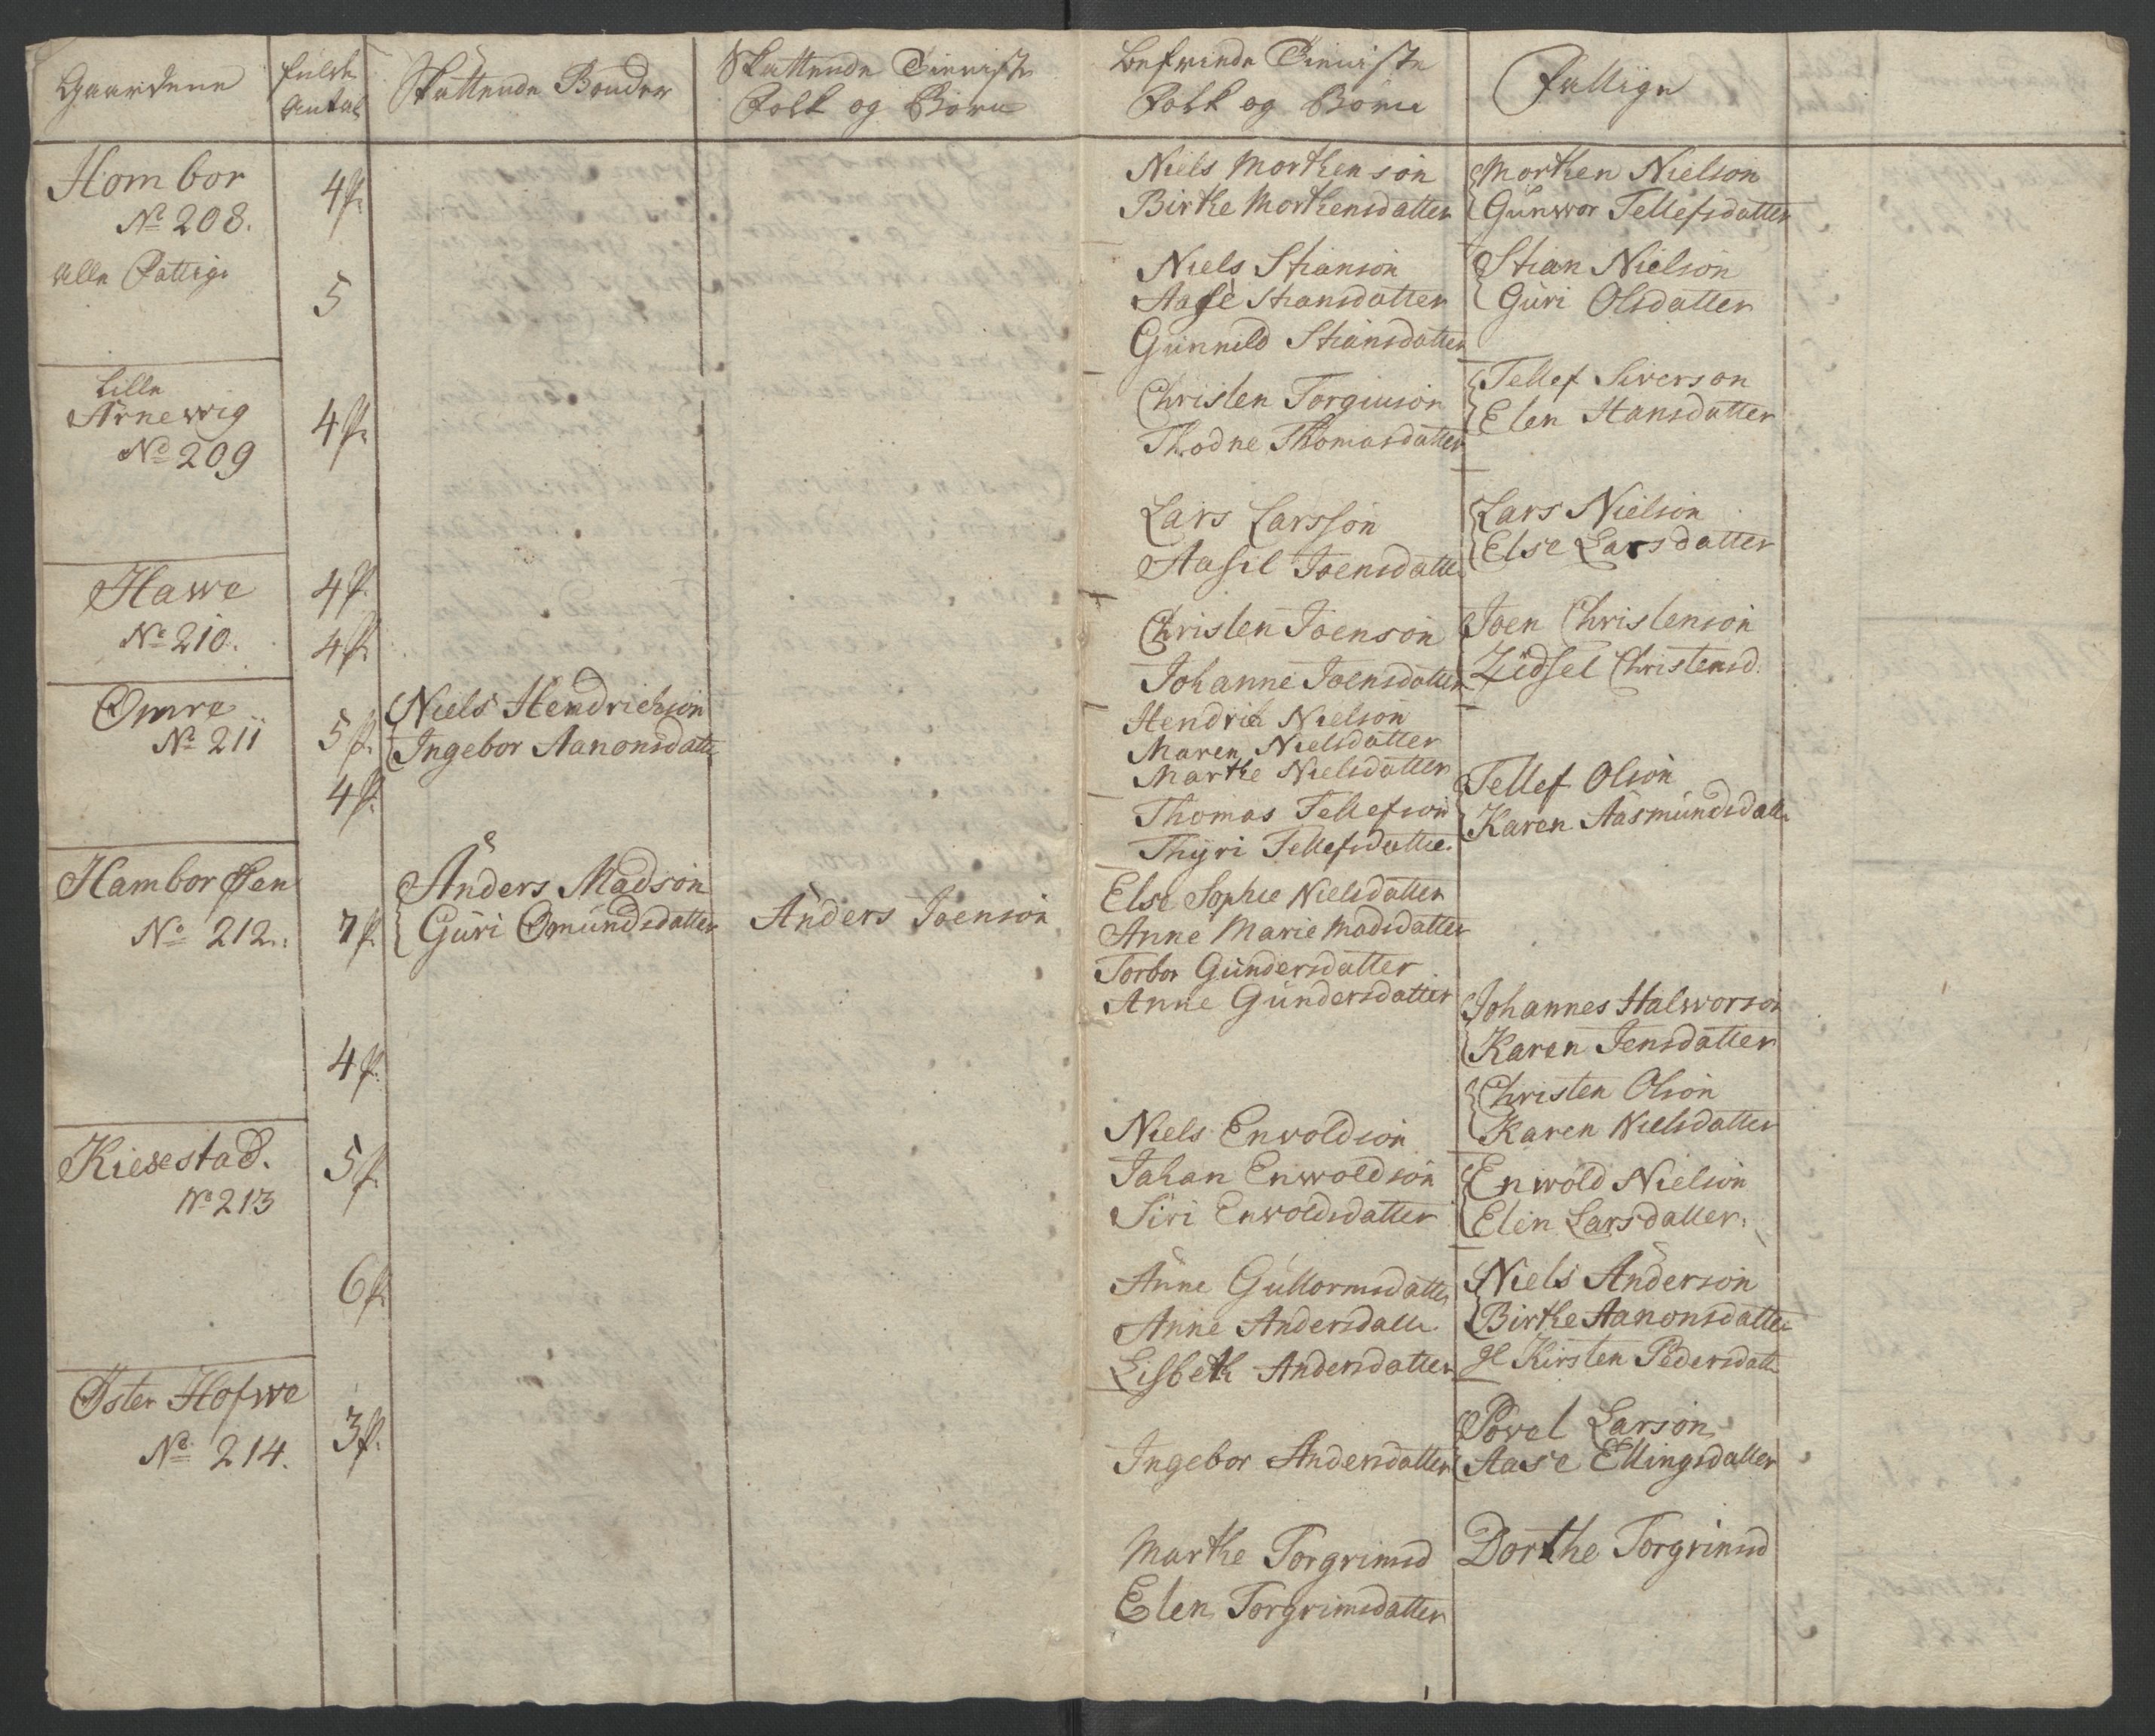 Gaardene
fulde Antal
Skattende Bønder
Skattende Tieniste Folk og Børn
Befriede Tieniste Folk og Børn
Fattige
Hombor
No 208.
alle Fattige
4 p.
Niels Morthenson
Birthe Morthensdatter
Morthen Nielson
Gunwor Tellefsdatter
5
Niels Stianson
Aase Stiansdatter
Gunnild Stiansdatter
Stian Nielson
Guri Olsdatter
Lille
Arnewig
No 209
4 p.
Christen Torgiuson
Thodne Thomasdatter
Tellef Siverson
Elen Hansdatter
Lars Larsson
Aasil Joensdatter
Lars Nielson
Else Larsdatter
Hawe
No 210.
4 p.
4 p.
Christen Joenson
Johanne Joensdatter
Joen Christenson
Zidsel Christensd.
Omre
No 211
5 p.
Niels Hendrichson
Ingebor Aanonsdatter
Hendrik Nielson
Maren Nielsdatter
Marthe Nielsdatter
4 p.
Thomas Tellefson
Thyri Tellefsdatter
Tellef Olson
Karen Aasmundsdatter
Hambor Øen
No 212.
7 p.
Anders Madson
Guri Omundsdatter
Anders Joenson
Else Sophie Nielsdatter
Anne Marie Madsdatter
Torbor Gundersdatter
Anne Gundersdatter
4 p.
Johannes Halworson
Karen Jensdatter
Christen Olson
Karen Nielsdatter
Kiesestad.
No 213
5 p.
Niels Enwoldson
Johan Enwoldson
Siri Enwoldsdatter
Enwold Nielson
Elen Larsdatter.
6 p.
Anne Gullormsdatter
Anne Andersdatter
Lisbeth Andersdatter
Niels Anderson
Birthe Aanonsdatter
gl Kirsten Pedersdatter
Øster Hofwe
No 214.
3 p.
Ingebor Andersdatter
Povel Larson
Aase Ellingsdatter
Marthe Torgrimsd
Elen Torgrimsdatter
Dorthe Torgrimsd